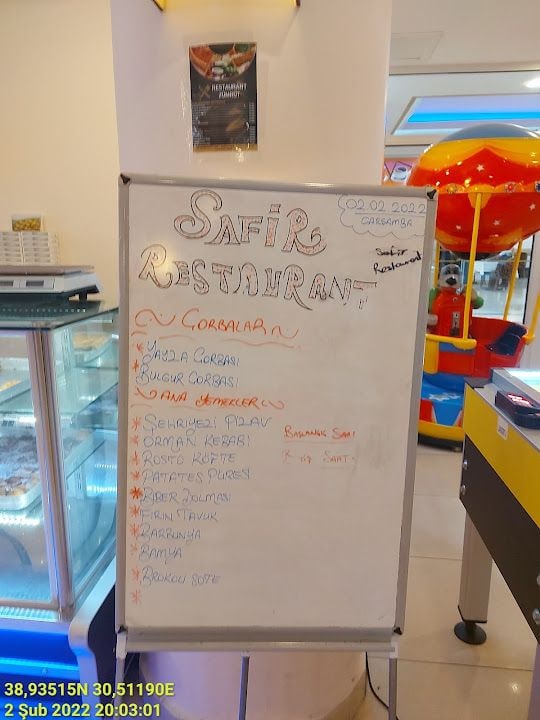 RESTAURANT
ZÜMRÜT
SAFİR
RESTAURANT
02.02.2022
ÇARŞAMBA
Safir
Restaurant
ÇORBALAR
YAYLA ÇORBASI
BULGUR ÇORBASI
ANA YEMEKLER
* ŞEHRİYELİ PİLAV
* ORMAN KEBABI
* ROSTO KÖFTE
* PATATES PÜRESİ
* BİBER DOLMASI
* FIRIN TAVUK
* BARBUNYA
* BAMYA
* BROKOLİ SOTE
*
SAATİ
SAAT
38,93515N 30,51190E
2 Şub 2022 20:03:01